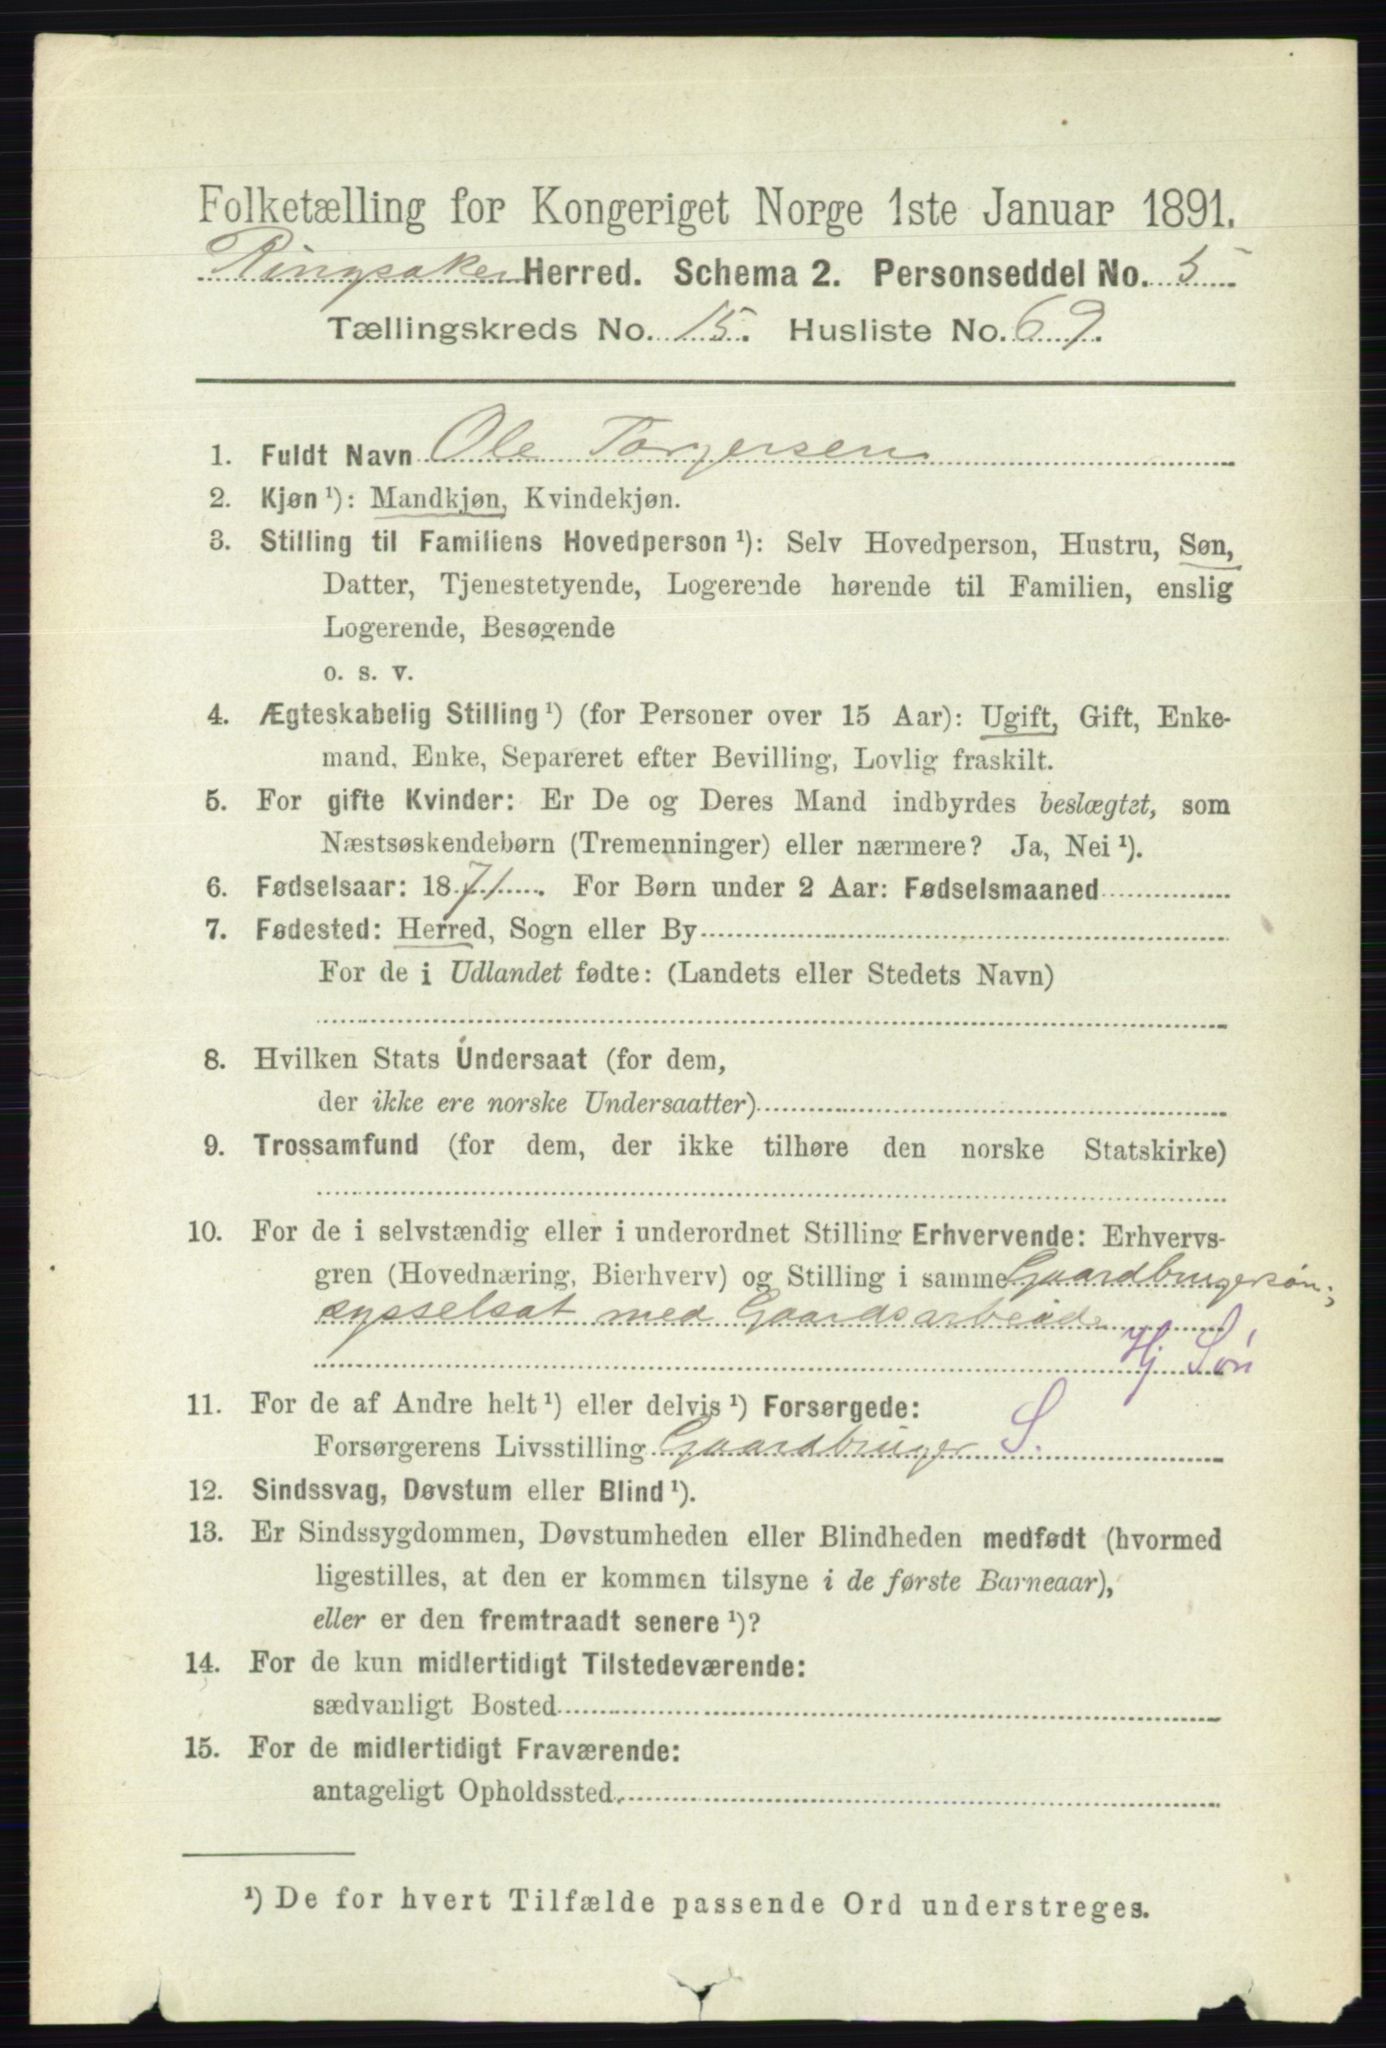 Folketælling for Kongeriget Norge 1ste Januar 1891.
Ringsaker Herred. Schema 2. Personseddel No. 5
Tællingskreds No. 15. Husliste No. 69.
1. Fuldt Navn Ole Torgersen
2. Kjøn ¹): Mandkjøn, Kvindekjøn.
3. Stilling til Familiens Hovedperson ¹): Selv Hovedperson, Hustru, Søn,
Datter, Tjenestetyende, Logerende hørende til Familien, enslig
Logerende, Besøgende
o. s. v.
4. Ægteskabelig Stilling ¹) (for Personer over 15 Aar): Ugift, Gift, Enke-
mand, Enke, Separeret efter Bevilling, Lovlig fraskilt.
5. For gifte Kvinder: Er De og Deres Mand indbyrdes beslægtet, som
Næstsøskendebørn (Tremenninger) eller nærmere? Ja, Nei ¹).
6. Fødselsaar: 1871. For Børn under 2 Aar: Fødselsmaaned
7. Fødested: Herred, Sogn eller By
For de i Udlandet fødte: (Landets eller Stedets Navn)
8. Hvilken Stats Undersaat (for dem,
der ikke ere norske Undersaatter)
9. Trossamfund (for dem, der ikke tilhøre den norske Statskirke)
10. For de i selvstændig eller i underordnet Stilling Erhvervende: Erhvervs-
gren (Hovednæring, Bierhverv) og Stilling i samme Gaardbrugersøn;
sysselsat med Gaardsarbeide
Hj Søn
11. For de af Andre helt ¹) eller delvis ¹) Forsørgede:
Forsørgerens Livsstilling Gaardbruger S.
12. Sindssvag, Døvstum eller Blind ¹).
13. Er Sindssygdommen, Døvstumheden eller Blindheden medfødt (hvormed
ligestilles, at den er kommen tilsyne i de første Barneaar),
eller er den fremtraadt senere ¹)?
14. For de kun midlertidigt Tilstedeværende:
sædvanligt Bosted
15. For de midlertidigt Fraværende:
antageligt Opholdssted
¹) De for hvert Tilfælde passende Ord understreges.